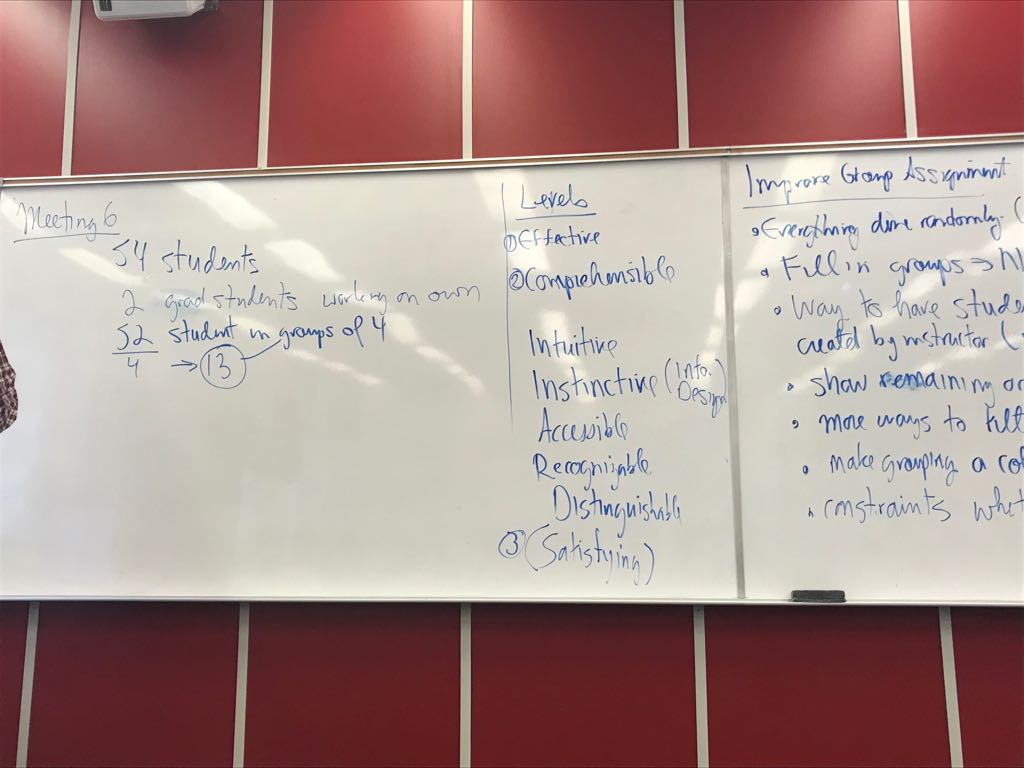 Meeting 6
54 students
2 grad students working on own
52 student in groups of 4
4 → 13
Levels
① Effective
② Comprehensible
Intuitive
Instinctive (Info. Design)
Accessible
Recognizable
Distinguishable
③ (Satisfying)
Improve Group Assignment
• Everything done randomly. (
• Fill in groups →
• Way to have
created by instructor (
• show remaining
• more ways to
• make grouping a
• constraints